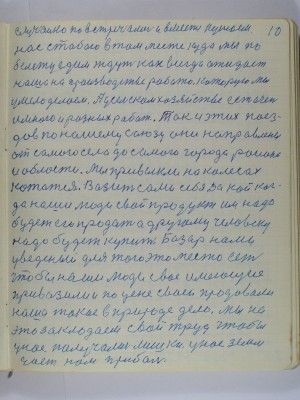 случайно повстречали и вместе кушаем 10
нас с тобою в том месте куда мы по
билету едим ждут как всегда ожидает
наша на производстве работа. Которую мы
умело делаем. А сельском хозяйстве есть от
и много и разных работ. Так и этих поез-
дов по нашему союзу они направлены
от самого села до самого города района
и области. Мы привыкли на колесах
кототся. Возит сам себя да кой ког-
да наши люди свой продукт им надо
будет его продат а другому человеку
надо будет купить. Базар нами
уведеный для того это место ест
чтобы наши люди свое имеющие
привазили и по цене своей продовали
наша такое в природе дело. Мы на
это закладаем свой труд чтобы
у нас получались мешки. у нас земли
част нам прибол